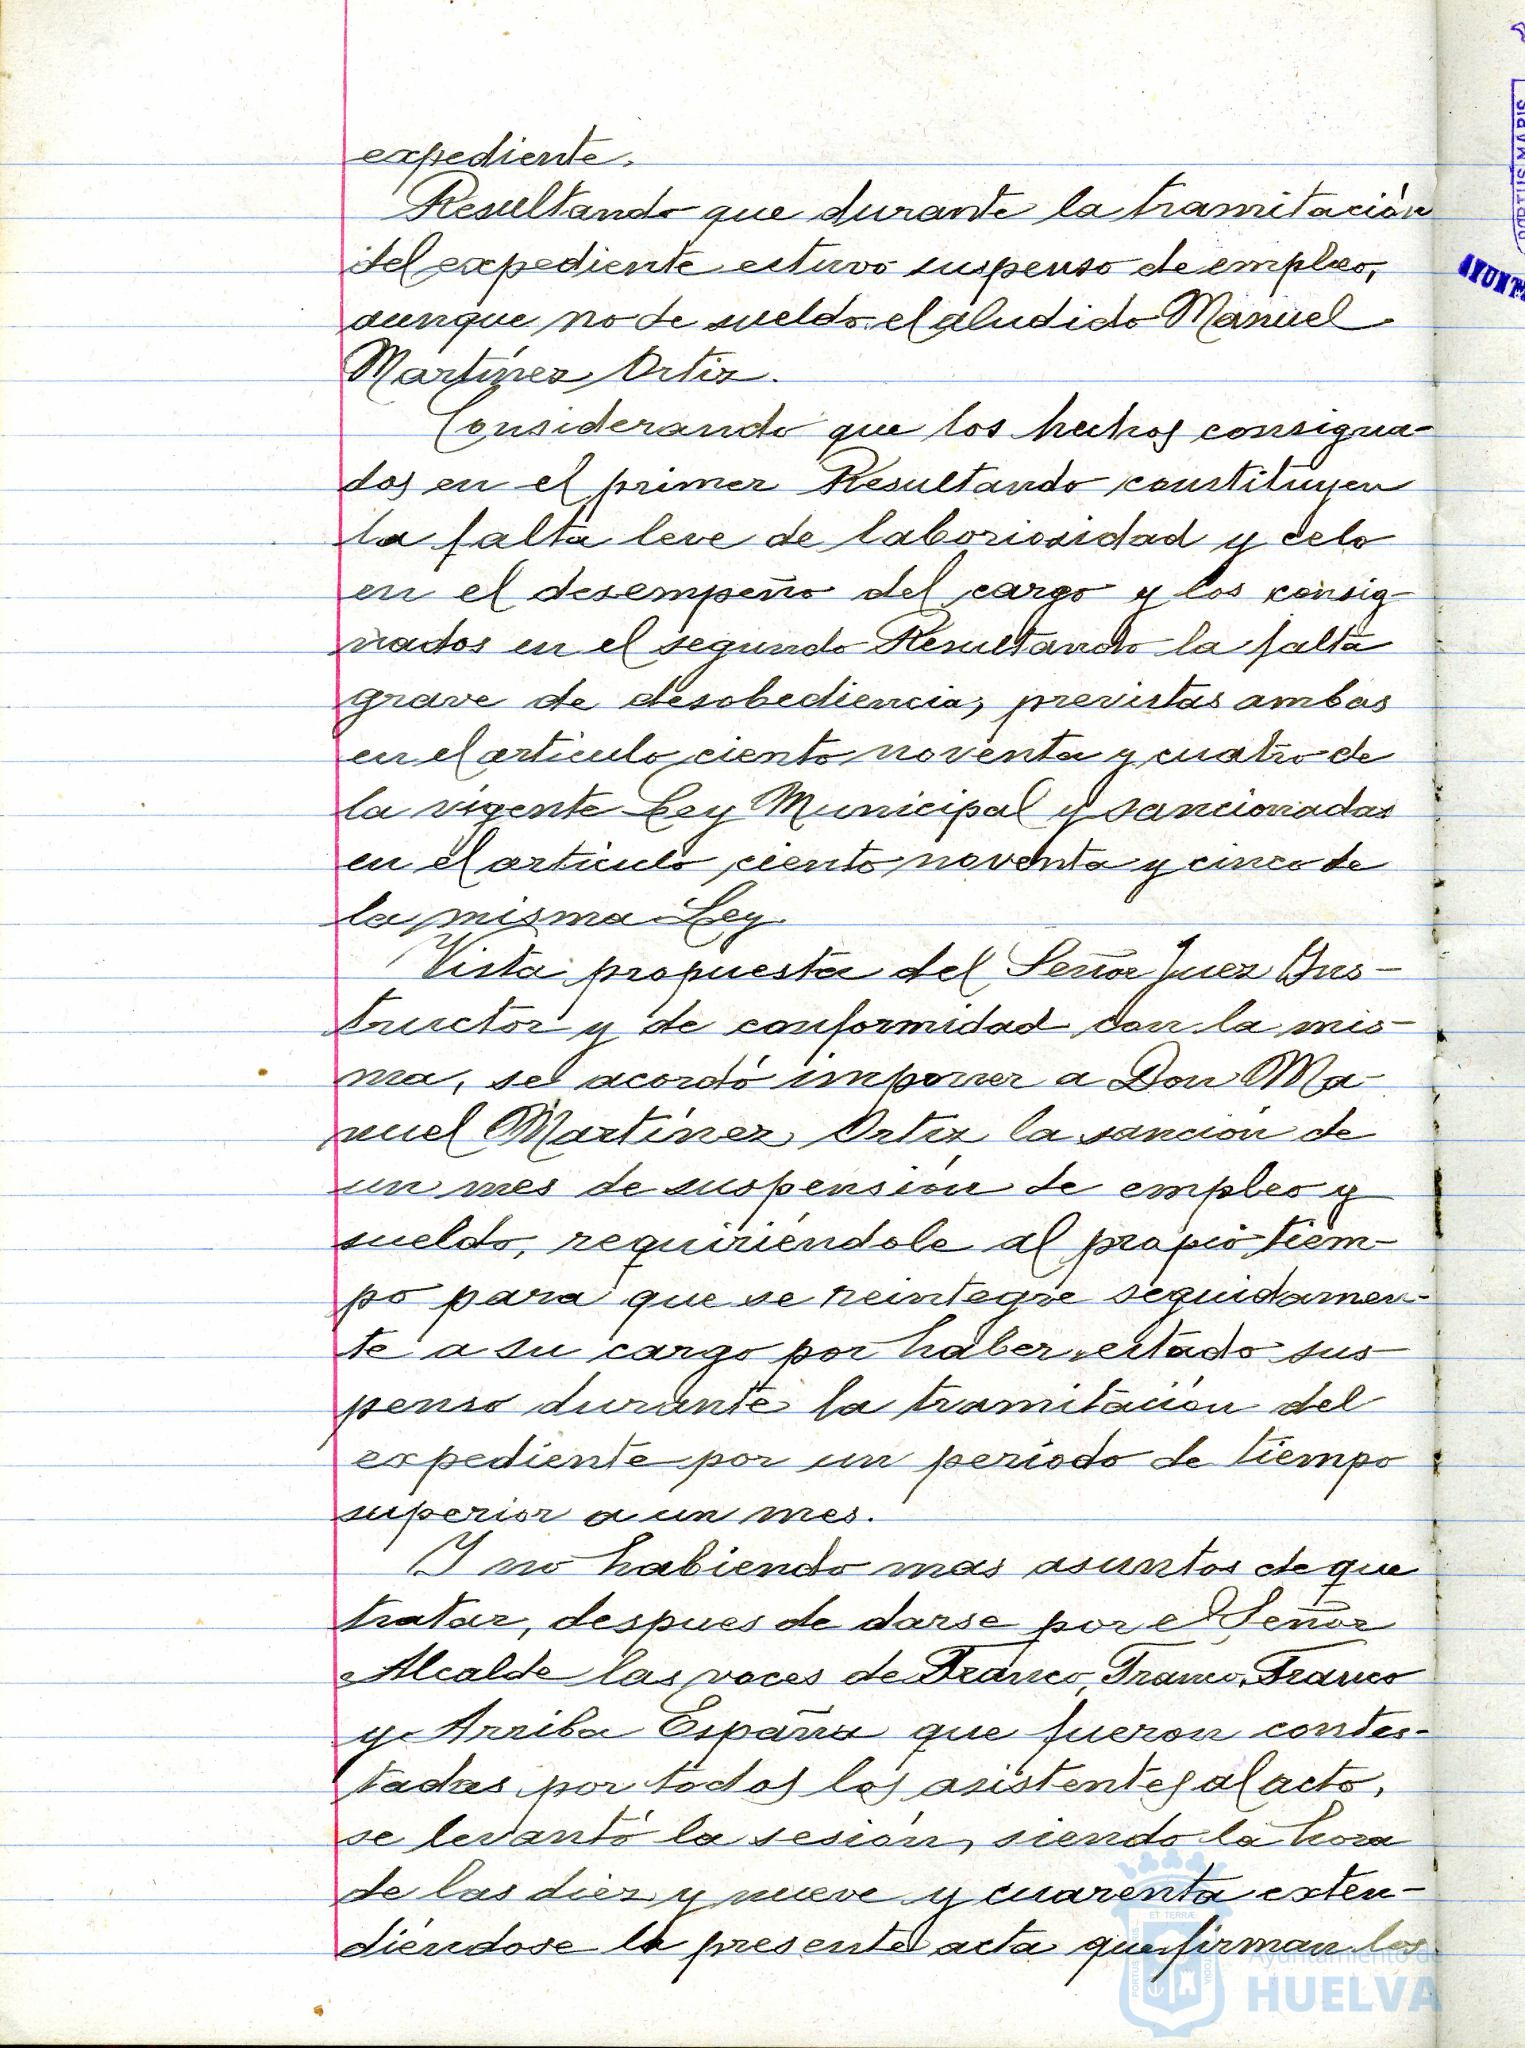 expediente.
Resultando que durante la tramitación
del expediente estuvo suspenso de empleo,
aunque no de sueldo el aludido Manuel
Martínez Ortiz.
Considerando que los hechos consigna-
dos en el primer Resultando constituyen
la falta leve de laboriosidad y celo
en el desempeño del cargo y los consig-
nados en el segundo Resultando la falta
grave de desobediencia, previstas ambas
en el articulo ciento noventa y cuatro de
la vigente Ley Municipal y sancionadas
en el articulo ciento noventa y cinco de
la misma Ley.
Vista propuesta del Señor Juez Ins-
tructor y de conformidad con la mis-
ma, se acordó imponer a Don Ma-
nuel Martínez Ortiz la sanción de
un mes de suspensión de empleo y
sueldo, requiriéndole al propio tiem-
po para que se reintegre seguidamen-
te a su cargo por haber estado sus-
penso durante la tramitación del
expediente por un período de tiempo
superior a un mes.
Y no habiendo mas asuntos de que
tratar, despues de darse por el Señor
Alcalde las voces de Franco, Franco, Franco
y Arriba España que fueron contes-
tadas por todos los asistentes al acto,
se levantó la sesión, siendo la hora
de las diez y nueve y cuarenta exten-
diéndose la presente acta que firman los
PORTUS MARIS
AYUNT
ET TERRÆ
PORTUS
CUSTODIA
Ayuntamiento de
HUELVA